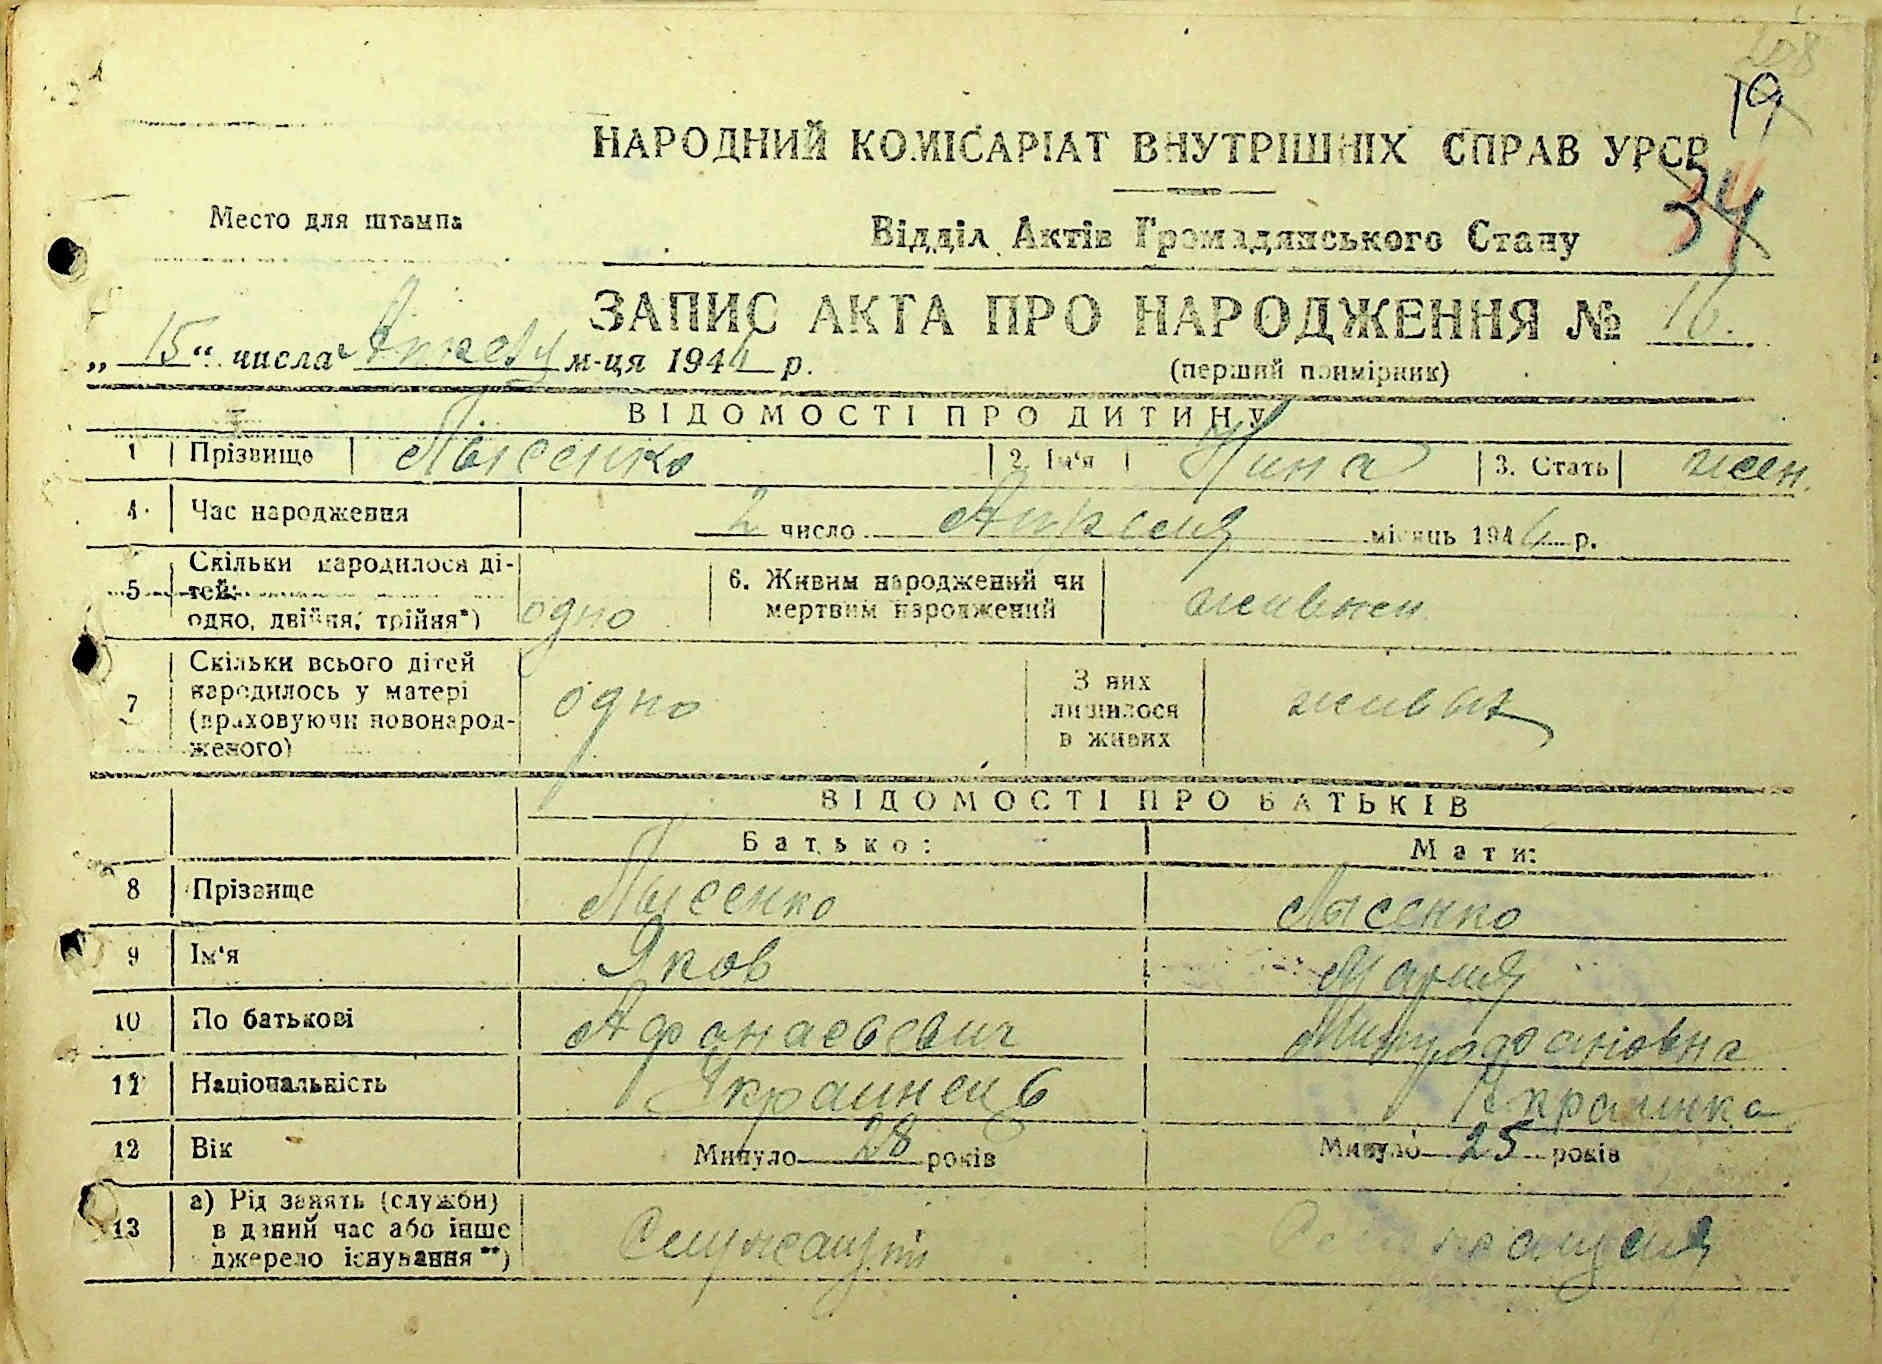 19
НАРОДНИЙ КОМІСАРІАТ ВНУТРІШНІХ СПРАВ УРСР
34
Место для штампа
Відділ Актів Громадянського Стану
ЗАПИС АКТА ПРО НАРОДЖЕННЯ № 16.
„ 15 “ числа Апреля м-ця 1944 р.
(перший примірник)
ВІДОМОСТІ ПРО ДИТИНУ
1 Прізвище Лысенко 2. Ім‘я Нина 3. Стать жен.
4 Час народження 2 число Апреля місяць 1944 р.
5 Скільки народилося ді-
тей:
одно, двійня, трійня*) одно
6. Живим народжений чи
мертвим народжений
7 Скільки всього дітей
народилось у матері
(враховуючи новонарод-
женого) одно
З них
лишилося
в живих
ВІДОМОСТІ ПРО БАТЬКІВ
Батько: Мати:
8 Прізвище Лысенко Лысенко
9 Ім‘я Яков Мария
10 По батькові Афанасьевич Митрофановна
11 Національність Украинец Украинка
12 Вік Минуло 28 років Минуло 25 років
13 а) Рід занять (служби)
в даний час або інше
джерело існування**) Служащий